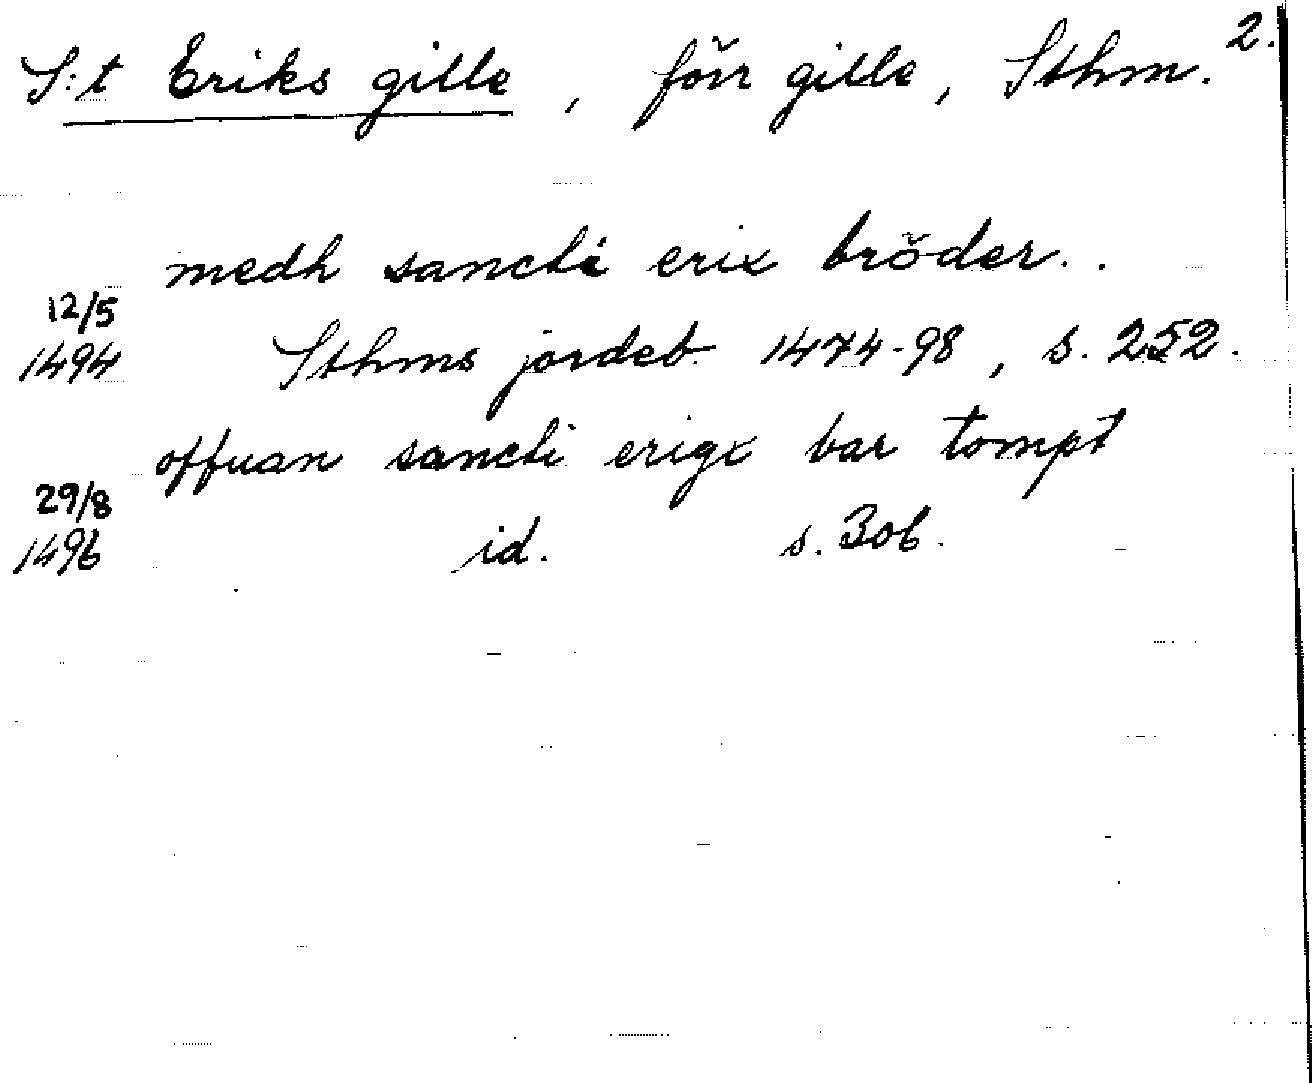 S:t Eriks gille, förr gille, Sthm. 2.
medh sancti erix bröder..
12/5
1494 Sthms jordeb 1474-98, s. 252.
offuan sancti erigx bar tompt
29/8
1496 id. s. 306.